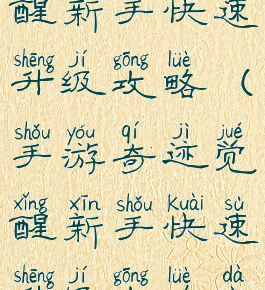 醒新手快速
shēng jí gōng lüè
升级攻略（
shǒu yóu qí jì jué
手游奇迹觉
xǐng xīn shǒu kuài sù
醒新手快速
shēng jí gōng lüè dà